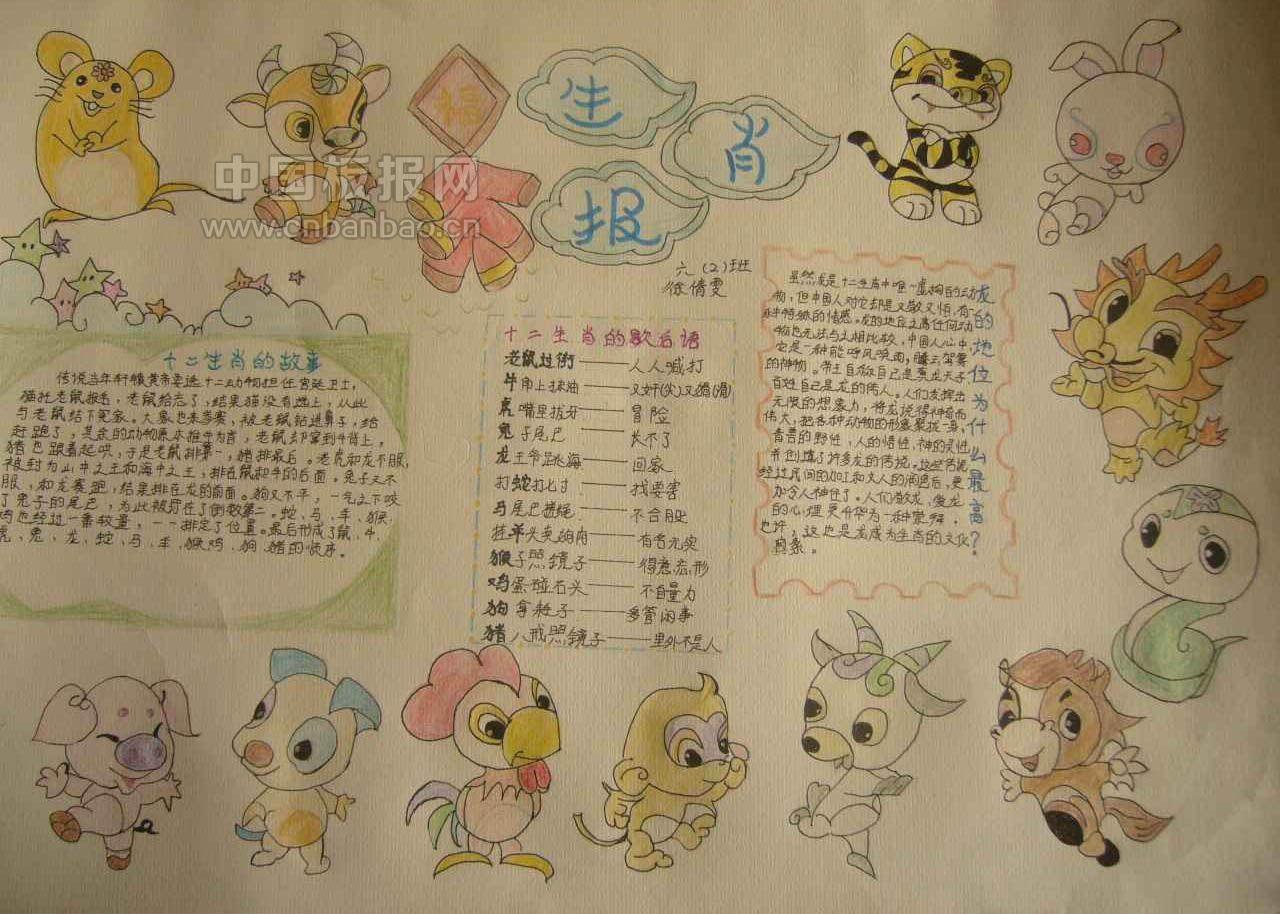 福
生
肖
报
中国板报网
www.cnbanbao.cn
六(2)班
徐倩雯
十二生肖的故事
传说当年轩辕黄帝要选十二动物担任宫廷卫士,
猫托老鼠报名,老鼠给忘了,结果猫没有选上,从此
与老鼠结下冤家。大象也来参赛,被老鼠钻进鼻子,给
赶跑了,其余的动物原本推牛为首,老鼠却窜到牛背上,
猪也跟着起哄,于是老鼠排第一,猪排最后。老虎和龙不服,
被封为山中之王和海中之王,排在鼠和牛的后面。兔子又不
服,和龙赛跑,结果排在龙的前面。狗又不平,一气之下咬
了兔子的尾巴,为此被罚在了倒数第二。蛇、马、羊、猴、
鸡也经过一番较量,一一排定了位置。最后形成了鼠、牛、
虎、兔、龙、蛇、马、羊、猴鸡、狗、猪的顺序。
十二生肖的歇后语
老鼠过街——人人喊打
牛角上抹油——又奸(尖)又猾(滑)
虎嘴里拔牙——冒险
兔子尾巴——长不了
龙王爷跳海——回家
打蛇打七寸——找要害
马尾巴搓绳——不合股
挂羊头卖狗肉——有名无实
猴子照镜子——得意忘形
鸡蛋碰石头——不自量力
狗拿耗子——多管闲事
猪八戒照镜子——里外不是人
龙的地位为什么最高?
虽然龙是十二生肖中唯一虚构的动
物,但中国人对它却是又敬又怕,有一
种特殊的情感。龙的地位之高任何动
物也无法与之相比较,中国人心中
它是一种能呼风唤雨,腾云驾雾
的神物。帝王自称自己是真龙天子,
百姓自己是龙的传人。人们发挥出
无限的想象力,将龙说得神奇而
伟大,把各种动物的形象聚拢一身,
有兽的野性,人的悟性,神的灵性,
也许,这也是龙成为生肖的文化